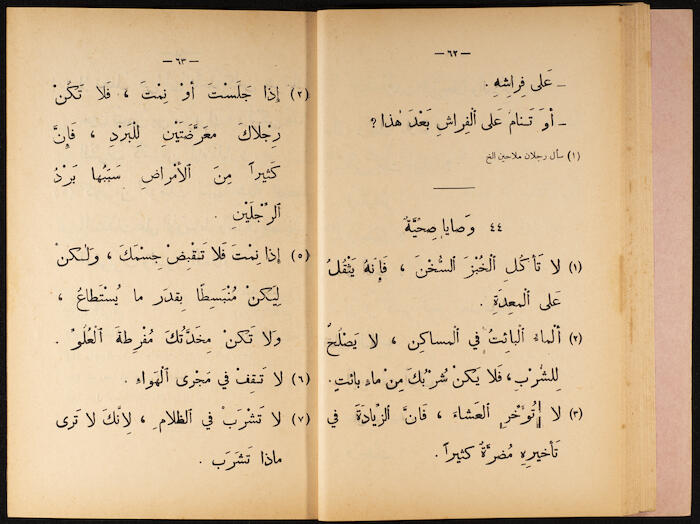 — ٦٢ —
ـ عَلى فِراشِهِ .
ـ أوَ تَنامُ عَلى ٱلْفِراشِ بَعْدَ هٰذا ?
(١) سأل رجلان ملاحين الخ
٤٤ وَصايا صِحِّيَّةٌ
(١) لا تَأكُلِ ٱلْخُبْزَ ٱلسُّخْنَ ، فَإنَّهُ يَثْقُلُ
عَلى ٱلْمعِدَةِ .
(٢) ألْماءُ ٱلْبائِتُ في ٱلْمساكِنِ ، لا يَصْلَحُ
لِلشُّرْبِ، فَلا يَكُنْ شُرْبُكَ مِنْ ماءٍ بائتٍ.
(٣) لا تُوَخِّرِ ٱلْعَشاءَ ، فَانَّ ٱلزِّيادَةَ في
تَأخيرِهِ مُضِرَّةٌ كَثيراً .
— ٦٣ —
(٢) إذا جَلَسْتَ أوْ نِمْتَ ، فَلا تَكُنْ
رِجْلاكَ مَعَرَّضَتَيْنِ لِلْبَردِ ، فَإنَّ
كَثيراً مِنَ ٱلأمْراضِ سَبَبُها بَرْدُ
ٱلرِّجْلَيْنِ .
(٥) إذا نِمْتَ فَلا تَنقَبِضْ جِسْمَكَ ، وَلٰكِنْ
لِيَكُنْ مُنْبَسِطًا بِقَدَرِ ما يُسْتَطاعُ ،
وَلا تَكُنْ مِخَدَّتُكَ مُفْرِطَةَ ٱلْعُلُوِّ .
(٦) لا تَقِفْ في مَجْرى ٱلْهَواءِ .
(٧) لا تَشْرَبْ في ٱلظَّلامِ ، لِأنَّكَ لا تَرى
ماذا تَشْرَب .